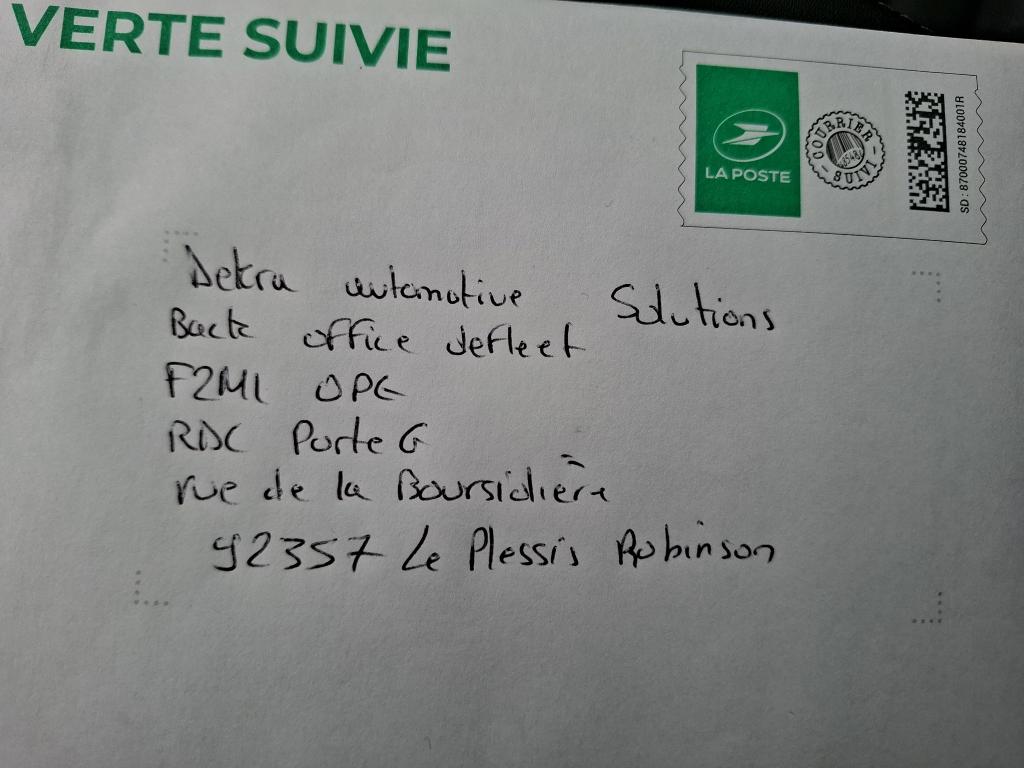 VERTE SUIVIE
LA POSTE
COURRIER SUIVI
SD : 87000748184001R
Dekra automotive Solutions
Back office defleet
F2M1 OPE
RDC Porte G
rue de la Boursidière
92357 Le Plessis Robinson